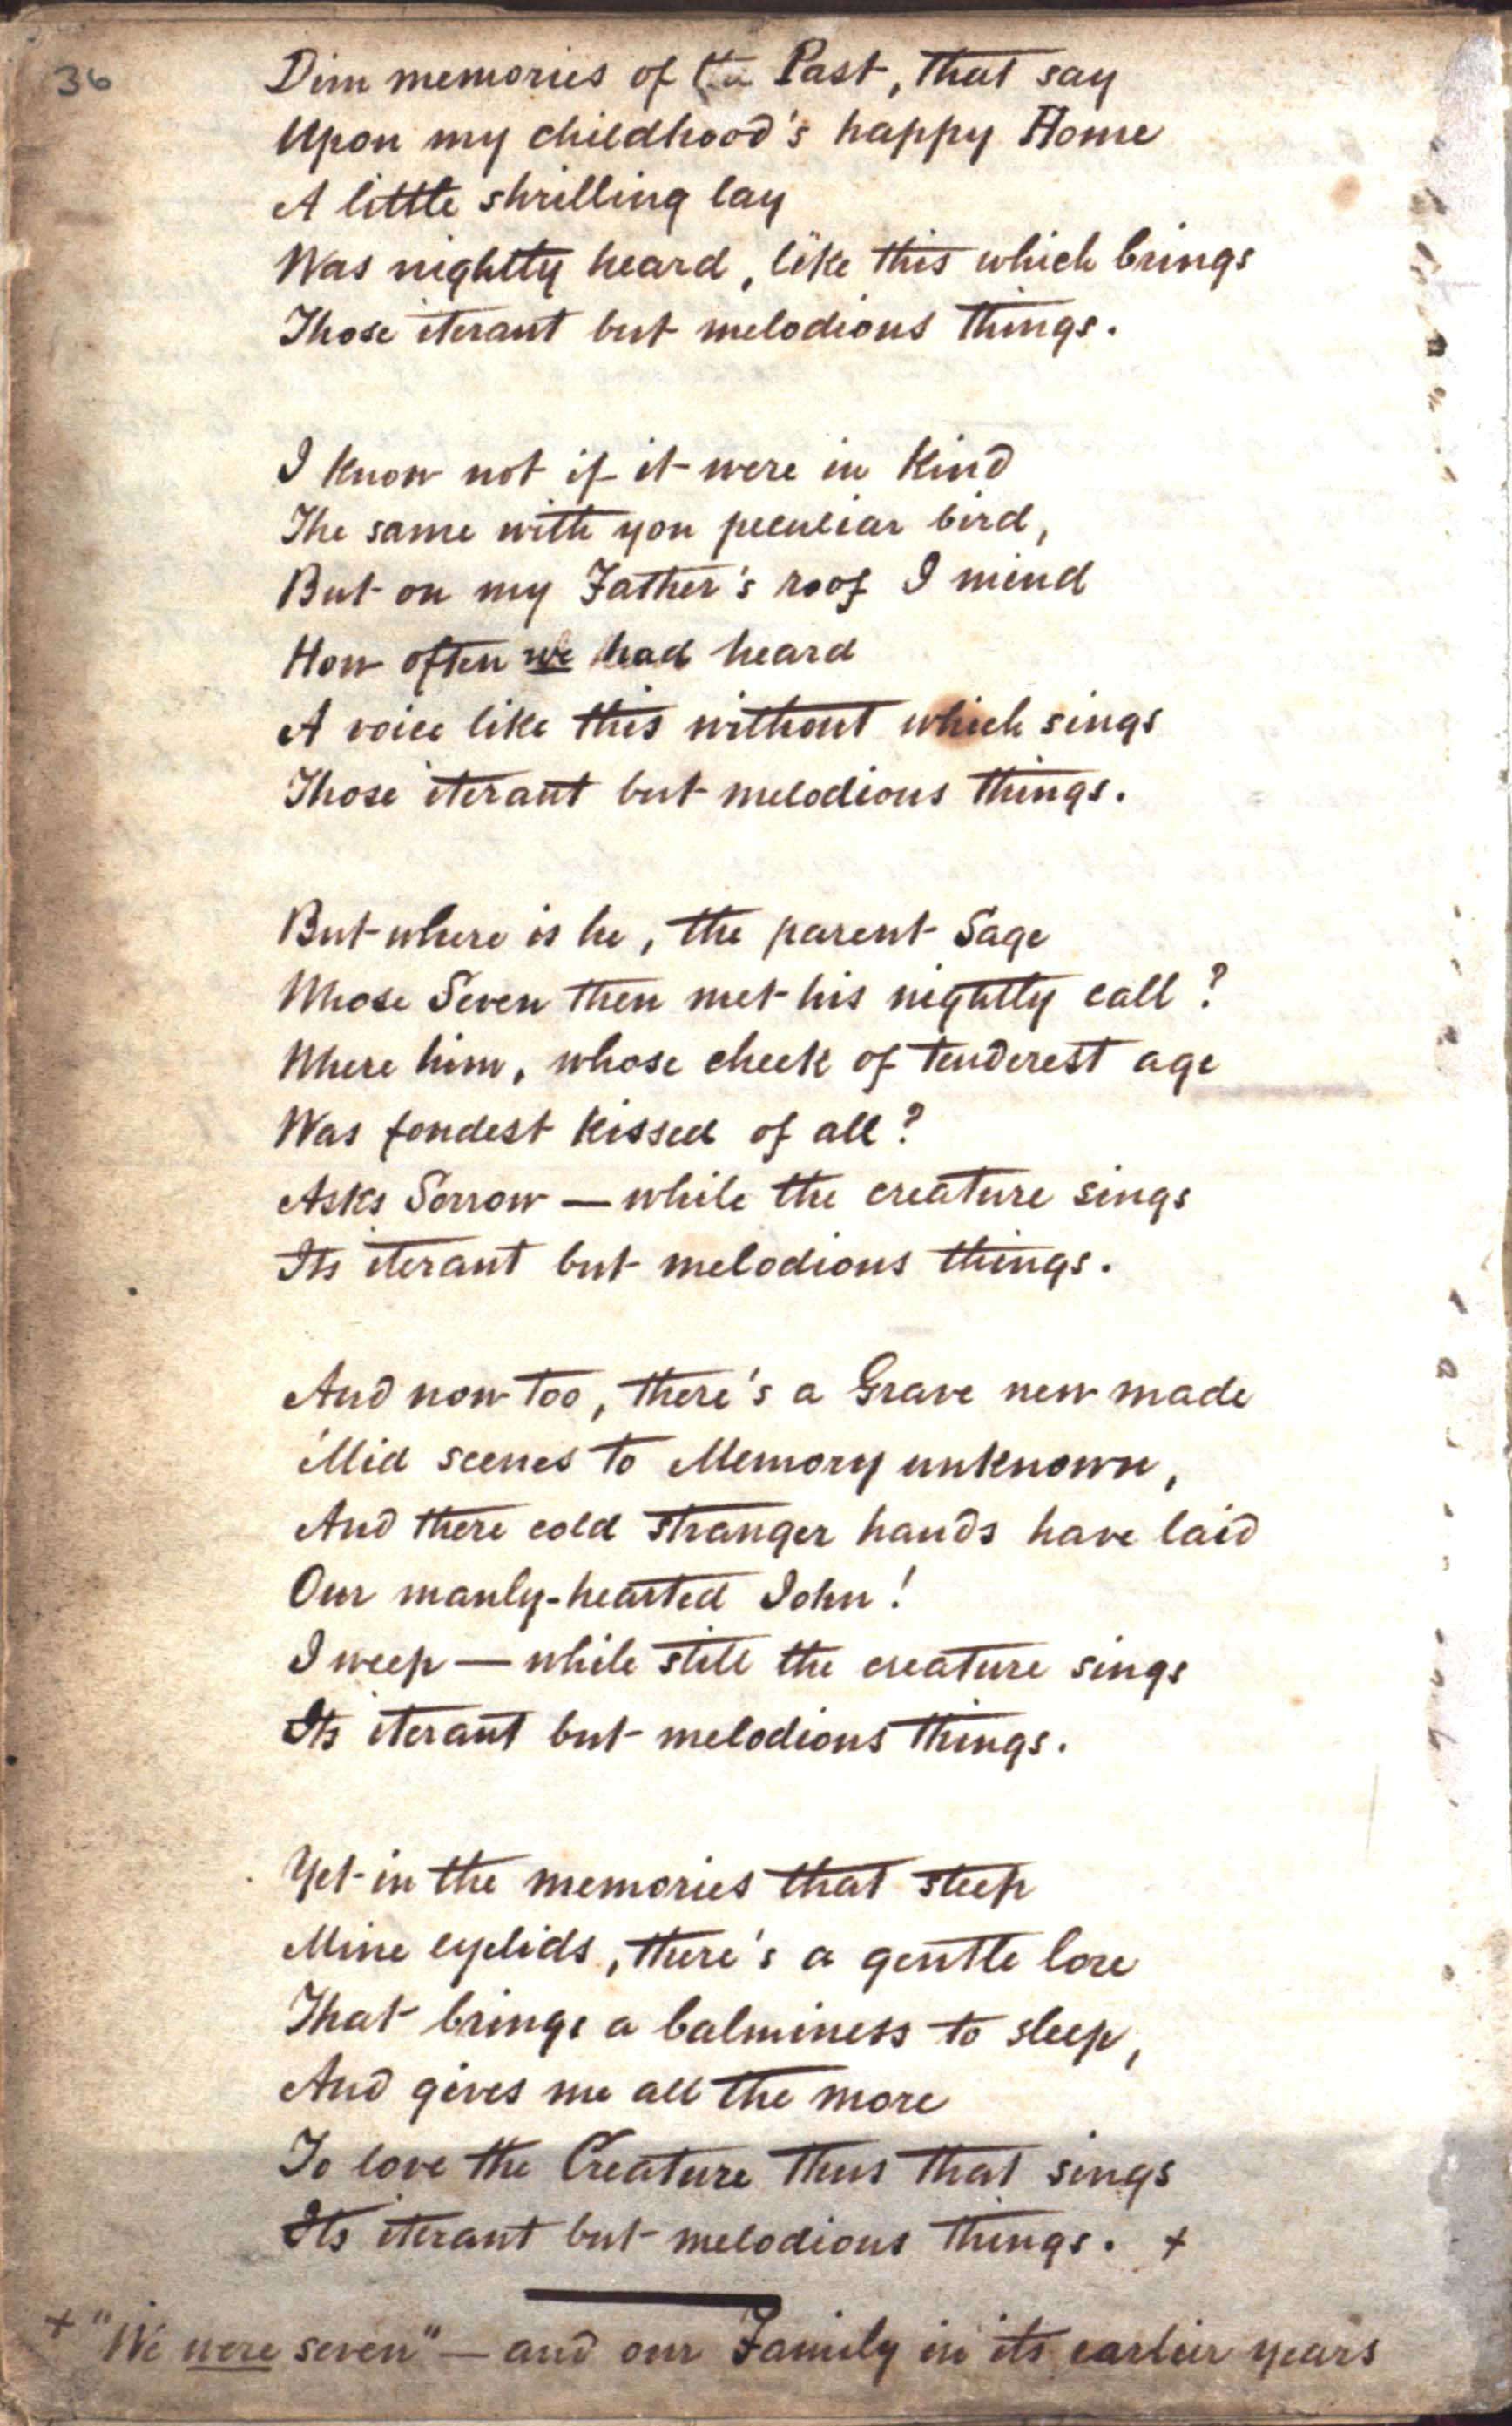 36
Dim memories of the Past, that say
Upon my childhood's happy Home
A little shrilling lay
Was nightly heard, like this which brings
Those iterant but melodious things.
I know not if it were in kind
The same with yon peculiar bird,
But on my Father's roof I mind
How often we had heard
A voice like this without which sings
Those iterant but melodious things.
But where is he, the parent Sage
Whose Seven then met his nightly call?
Where him, whose cheek of tenderest age
Was fondest kissed of all?
Asks Sorrow — while the creature sings
Its iterant but melodious things.
And now too, there's a Grave new made
'Mid scenes to Memory unknown,
And there cold stranger hands have laid
Our manly-hearted John!
I weep — while still the creature sings
Its iterant but melodious things.
Yet in the memories that steep
Mine eyelids, there's a gentle lore
That brings a balminess to sleep,
And gives me all the more
To love the Creature thus that sings
Its iterant but melodious things. +
+ "We were seven" — and our Family in its earlier years